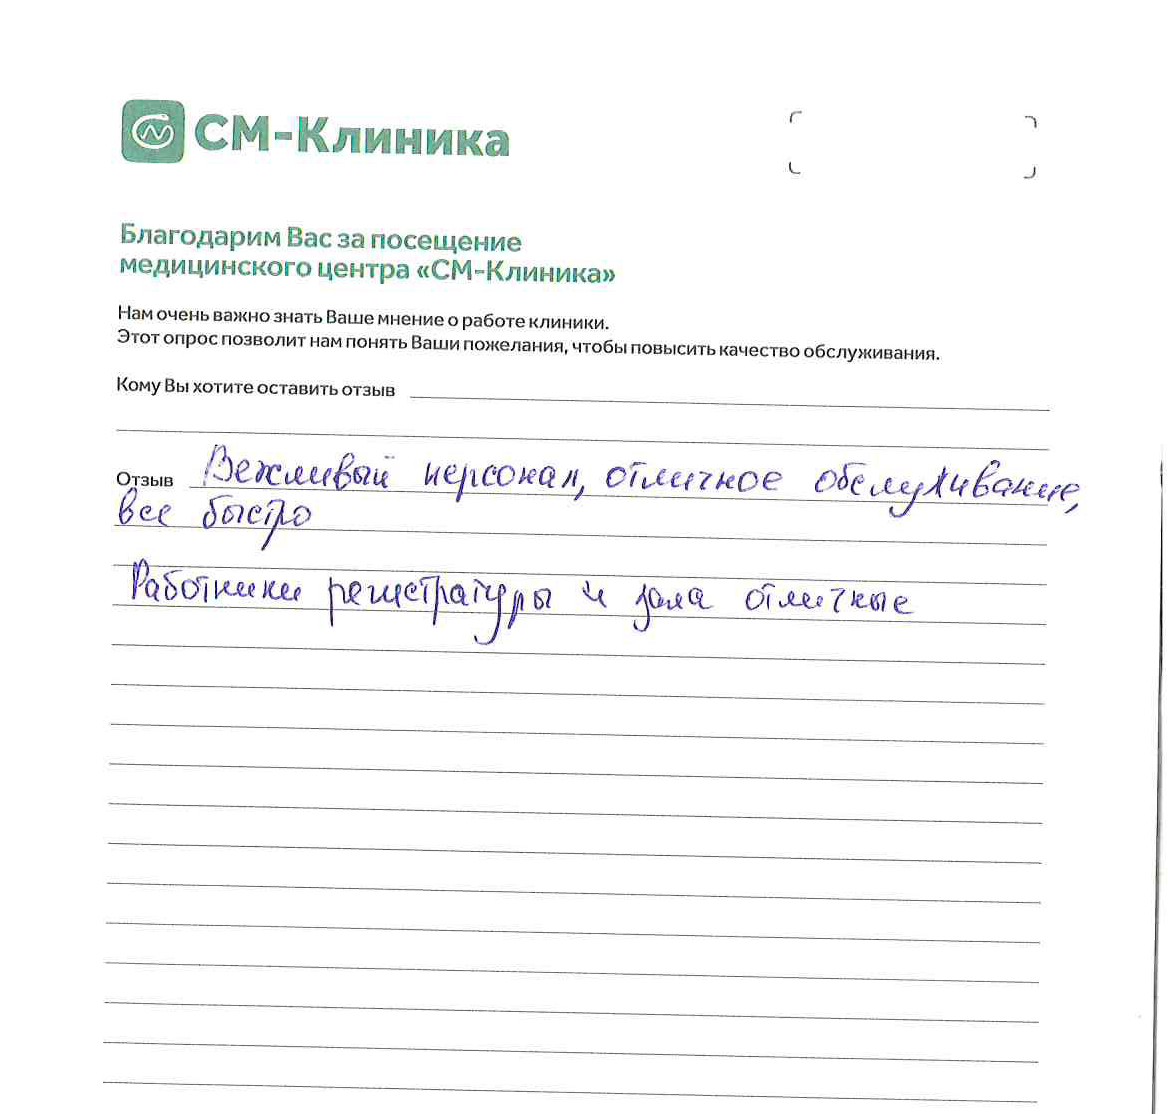 СМ-Клиника
Благодарим Вас за посещение
медицинского центра «СМ-Клиника»
Нам очень важно знать Ваше мнение о работе клиники.
Этот опрос позволит нам понять Ваши пожелания, чтобы повысить качество обслуживания.
Кому Вы хотите оставить отзыв
Отзыв Вежливый персонал, отличное обслуживание,
все быстро
Работники регистратуры и зала отличные